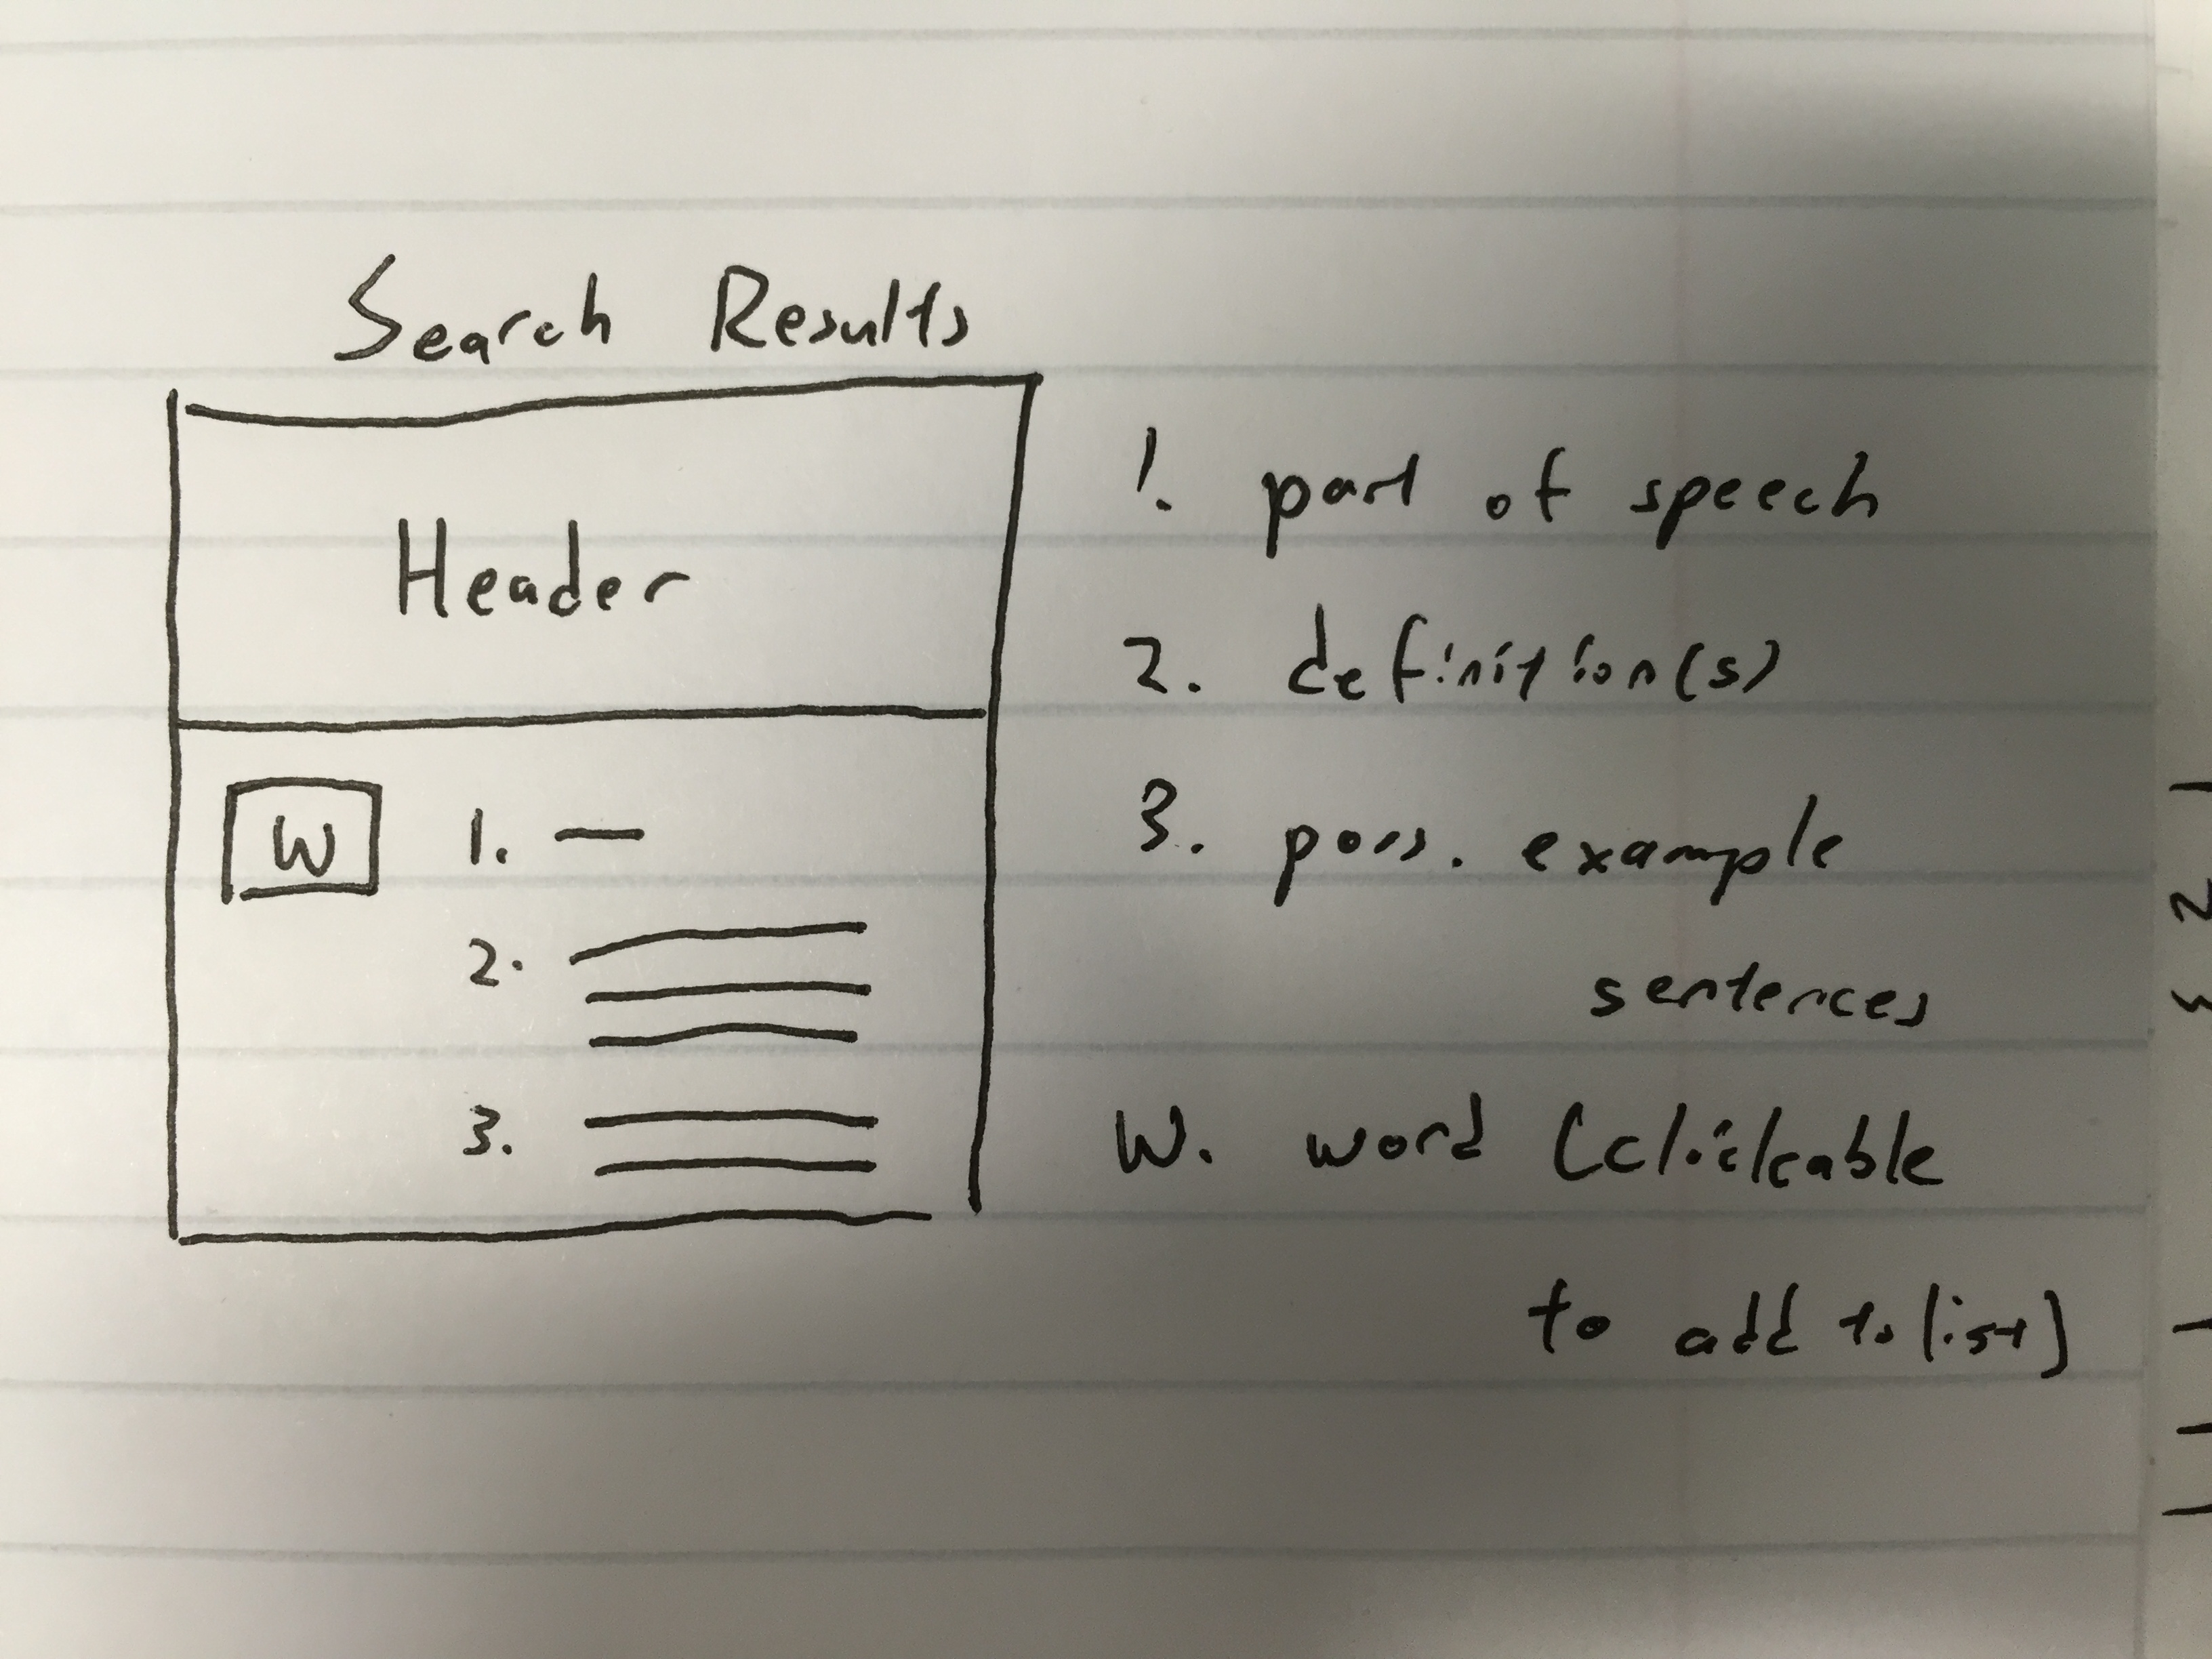 Search Results
Header
W
1.
2.
3.
1. part of speech
2. definition(s)
3. poss. example
sentences
W. word (clickable
to add to list)